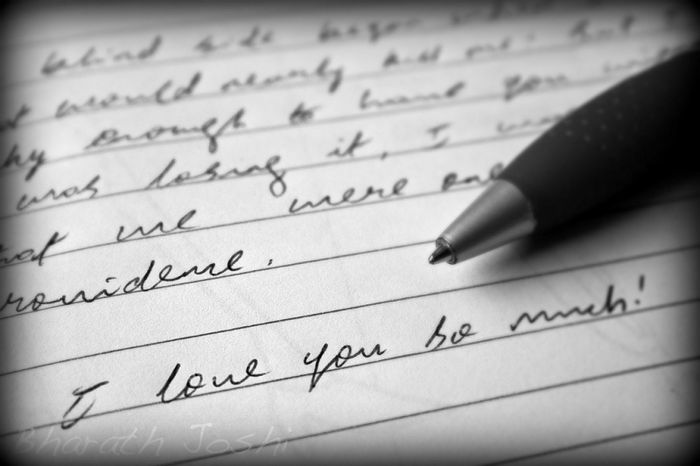 behind side began
would nearly kill me. But I
enough to have you
was losing it, I was
that we were one
I love you so much!
Bharath Joshi